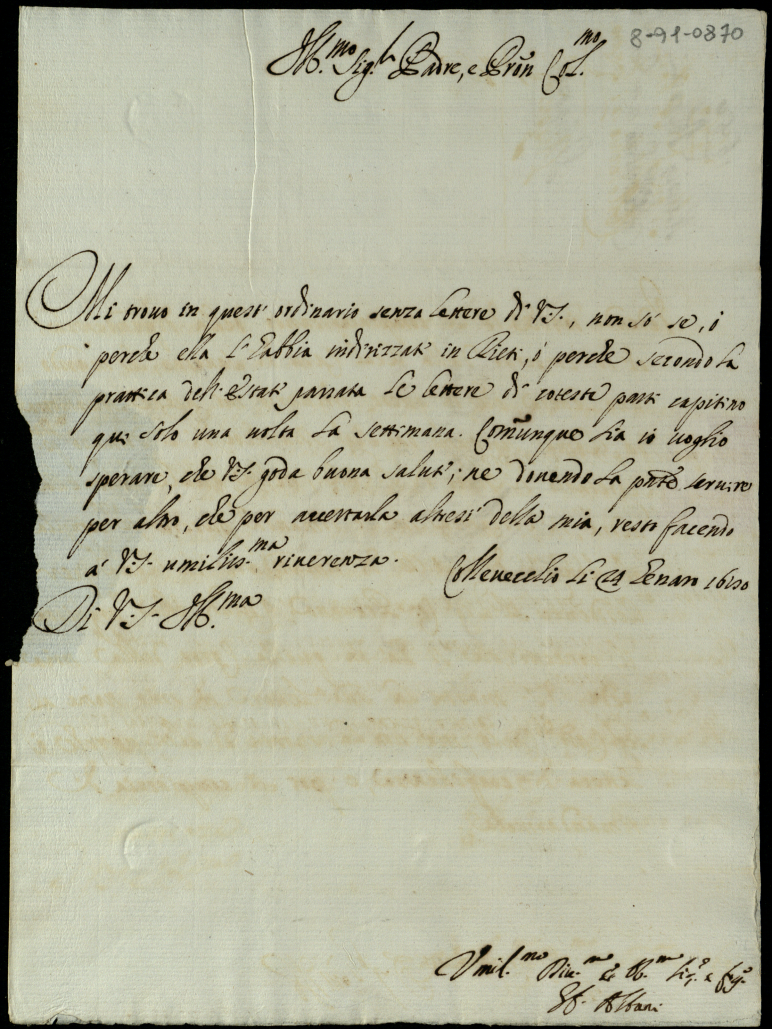 8-91-0870
Ill.mo Sig.r Padre, e Pròn Col.mo
Mi trouo in questi ordinario senza lettere di V.S., non sò se, ò
perche ella l'habbia indirizzati in Rieti, ò perche secondo la
prattica dell'Estati passata le lettere di coteste parti capitino
qui solo una uolta la settimana. Comunque sia io uoglio
sperare, che V.S. goda buona saluti; ne douendo la pñte seruire
per altro, che per accertarla altresi della mia, resto facendo
a' V.S. umiliss.ma riuerenza. Colleuecchio li 24
Di V.S. Ill.ma
Vmil.mo
Albani